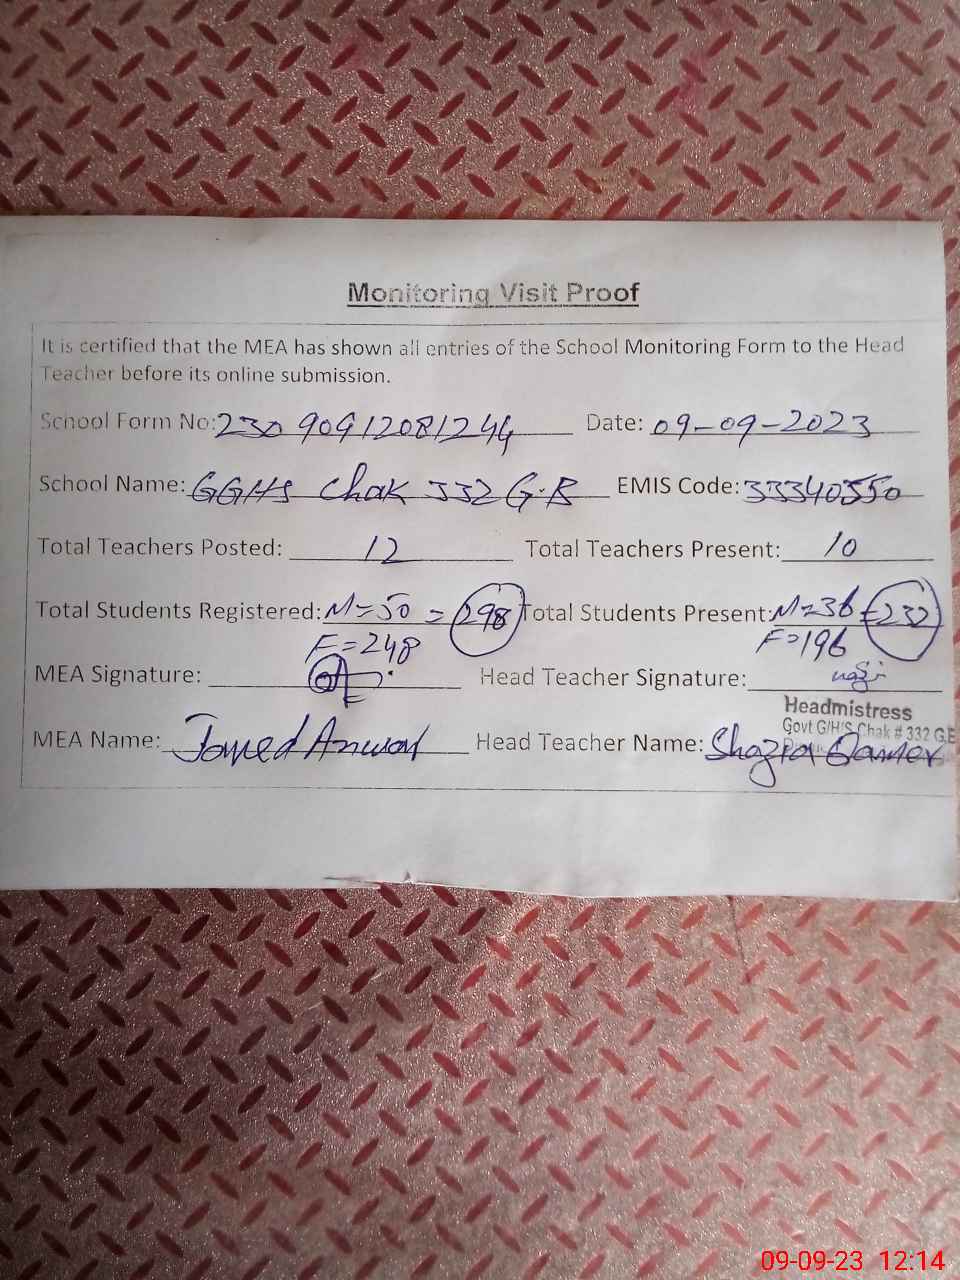 Monitoring Visit Proof
It is certified that the MEA has shown all entries of the School Monitoring Form to the Head
Teacher before its online submission.
School Form No: 23090912081244 Date: 09-09-2023
School Name: GGHS Chak 332 G.B EMIS Code: 33340550
Total Teachers Posted: 12 Total Teachers Present: 10
Total Students Registered: M=50 = 298 Total Students Present: M=36 = 232
F=248 F=196
MEA Signature: Head Teacher Signature:
Headmistress
Govt G/H/S Chak # 332 G.B
MEA Name: Javed Anwar Head Teacher Name: Shazia Qamer
09-09-23 12:14